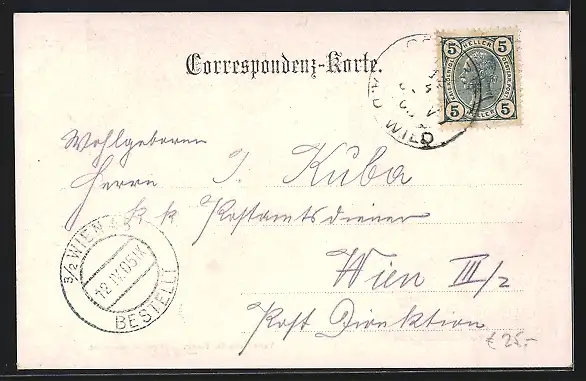 Correspondenz-Karte.
5 HELLER 5
5 HELLER 5
WILD
Wohlgeboren
Herrn J. Kuba
k k Postamtsdiener
Wien III/2
Post Direktion
3/2 WIEN
12 IX 05 IX
BESTELLT
€ 25.-